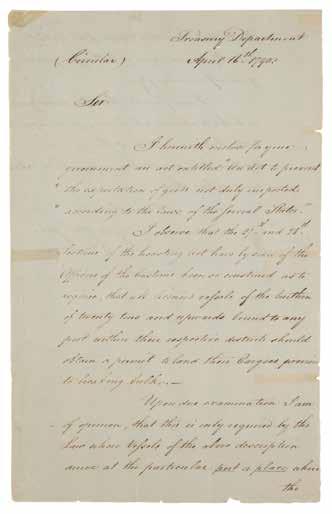 Treasury Department
(Circular) April 16th 1790.
Sir
I herewith inclose for your
government an act entitled "An Act to prevent
"the exportation of goods not duly inspected
"according to the Laws of the several States."
I observe that the and 28th
Sections of the Collecting act have by some of the
Officers of the Customs been so construed as to
require, that all vessels of the burthen
of twenty tons and upwards bound to any
port within their respective districts should
obtain a permit to land their Cargoes previous
to breaking bulk.—
Upon due examination I am
of opinion, that this is only required by the
Law where Vessels of the above description
arrive at the particular port or place where
the